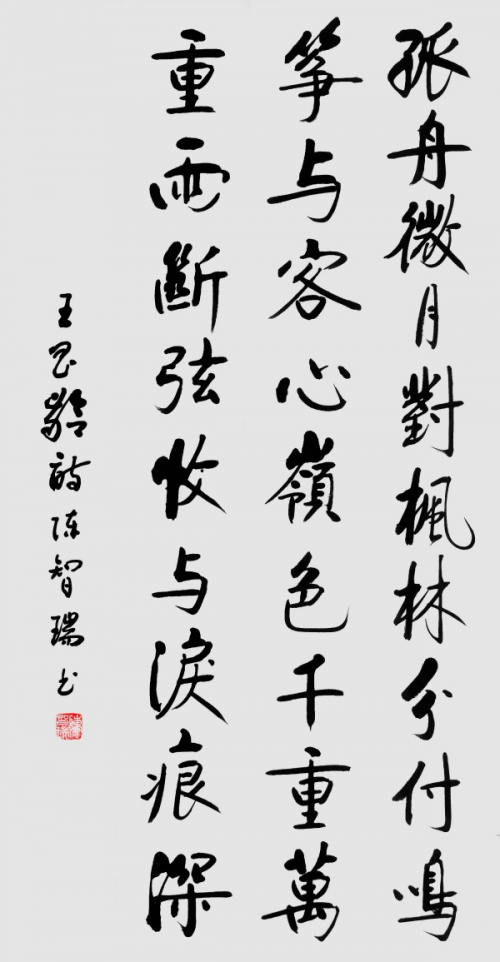 孤舟微月對楓林分付鳴
筝与客心嶺色千重萬
重雨斷弦收与淚痕深
王昌齡詩陈智瑞书